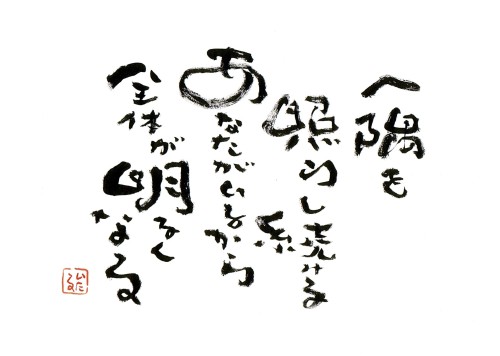 一隅を
照らし続ける
あなたがいるから
全体が明るくなる